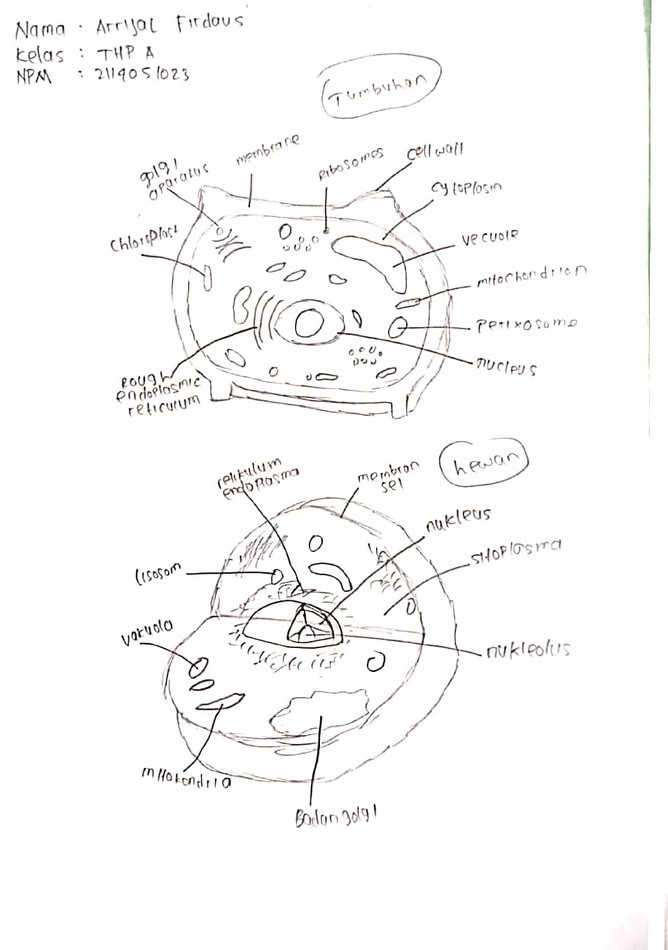 Nama : Arrijal Firdaus
Kelas : THP A
NPM : 2114051023
Tumbuhan
golgi
aparatus
membrane
Ribosomes
cell wall
cytoplasm
Chloroplast
vecuole
mitochondrion
Perixosome
nucleus
Rough
endoplasmic
reticurum
hewan
retikulum
endoplasma
membran
sel
nukleus
sitoplasma
Lisosom
vakuola
nukleolus
mitokondria
Badan golgi